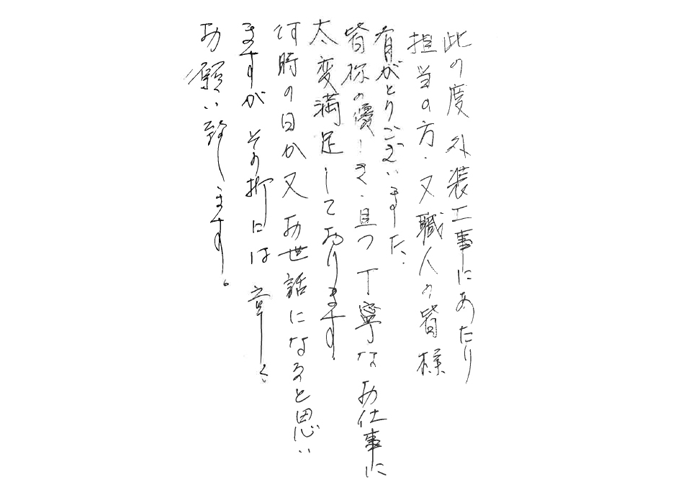 此の度外装工事にあたり
担当の方・又職人の皆様
有がとりございました.
皆様の優しさ・且つ丁寧なお仕事に
大変満足しております.
何時の日か又お世話になると思い
ますが その折には 宜しく
お願い致します。